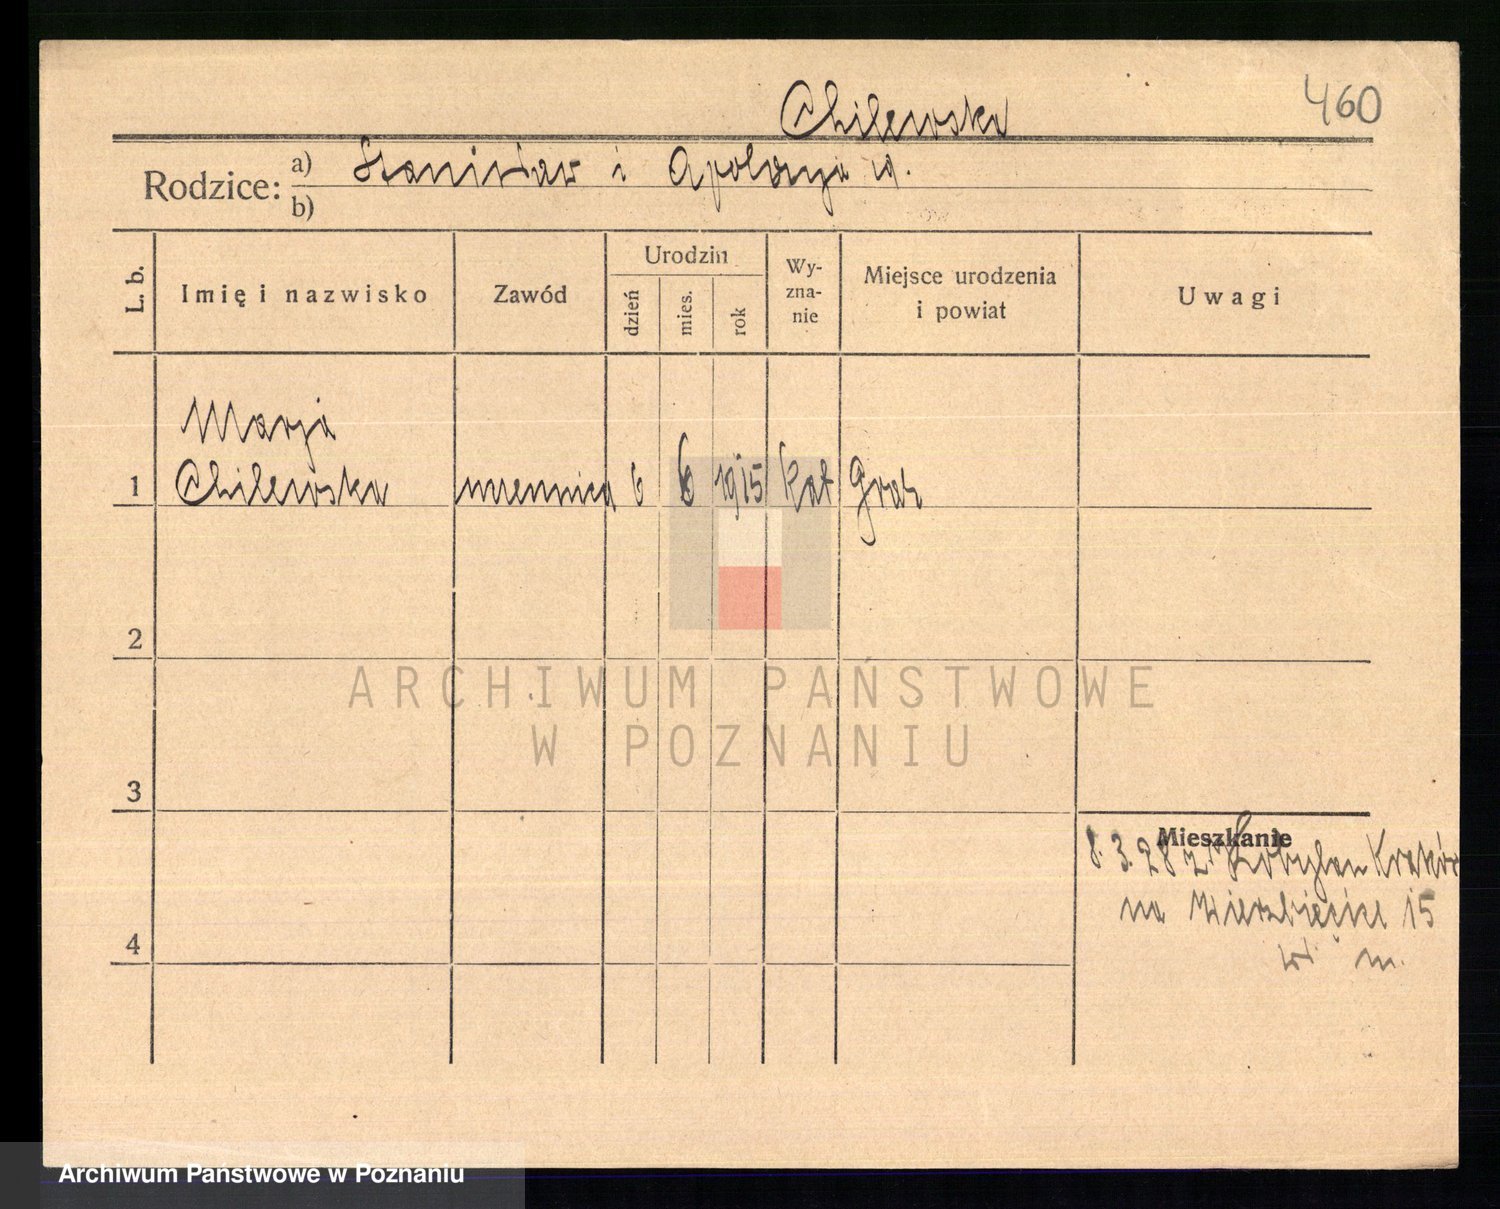 460
Chilewska
Rodzice: a) Stanisław i Apolonja
b)
L. b.
Imię i nazwisko
Zawód
Urodzin
dzień
mies.
rok
Wy-
zna-
nie
Miejsce urodzenia
i powiat
Uwagi
Marja
1 Chilewska uczennica 6 6 1915 kat Graz
2
3
4
Mieszkanie
8.3.28 z Kobylan Kraków
na Wierzbięcice 15
m.
ARCHIWUM PAŃSTWOWE
W POZNANIU
Archiwum Państwowe w Poznaniu